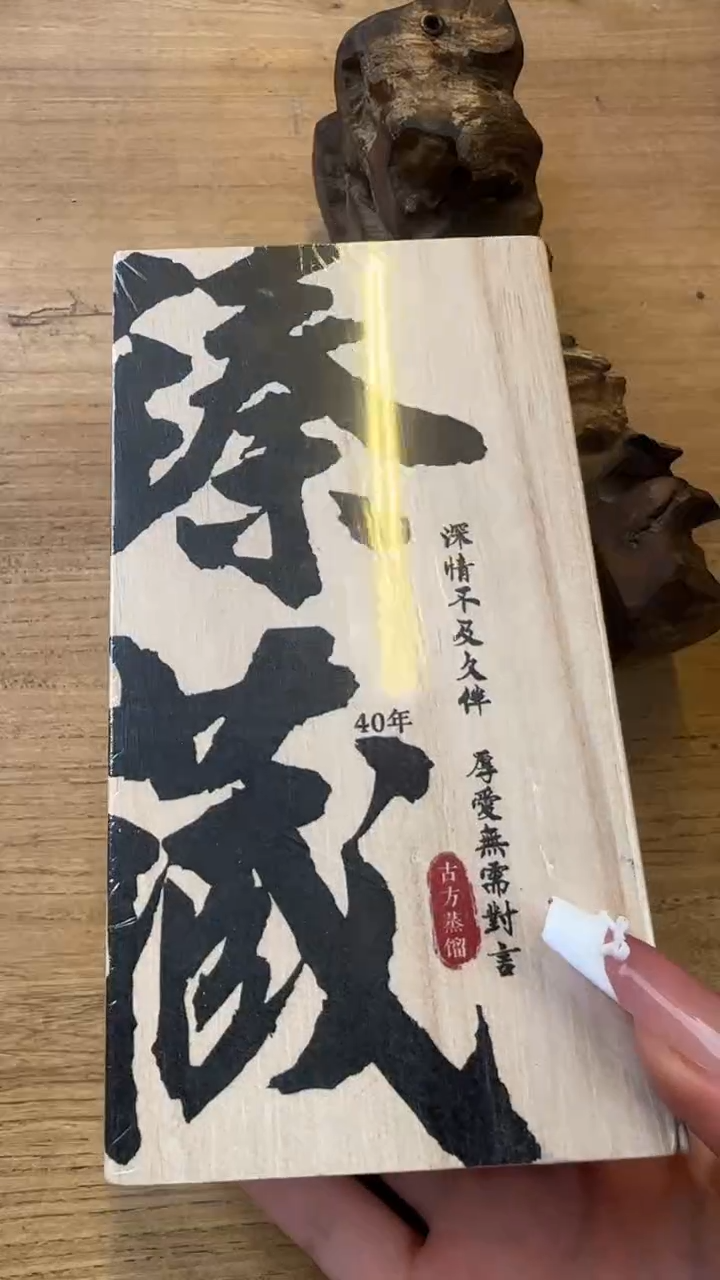 臻藏
40年
深情不及久伴
厚愛無需對言
古方蒸馏